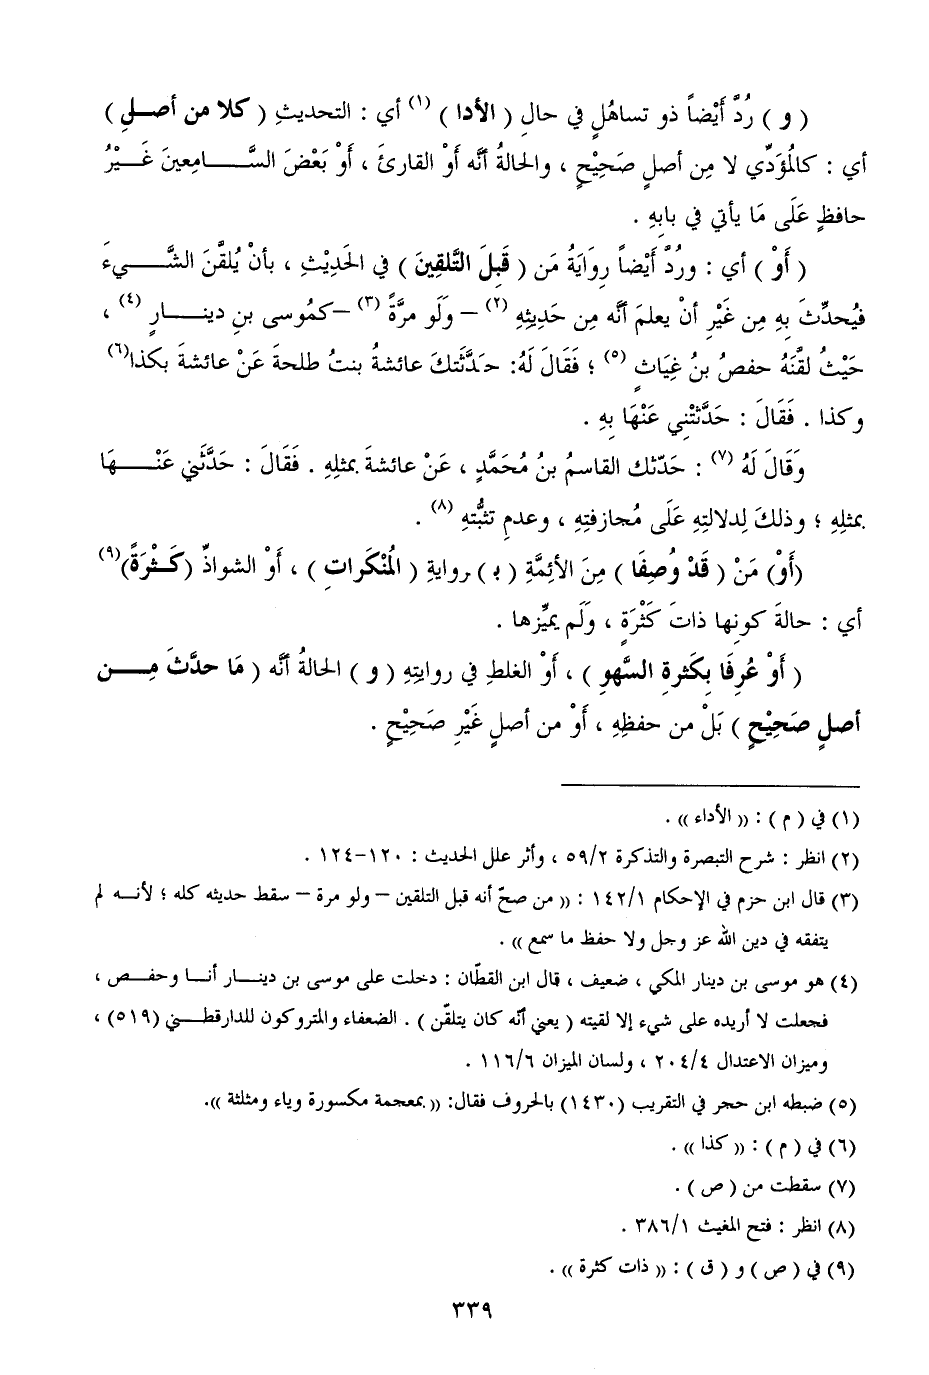 ( و ) رُدَّ أَيْضاً ذو تساهُلٍ في حالِ ( الأدا ) (١) أي : التحديثِ ( كلا من أصلِ )
أي : كالمُؤَدِّي لا مِن أصلٍ صَحِيْحٍ ، والحالةُ أنَّه أوْ القارئَ ، أوْ بَعْضَ السَّــــامِعينَ غَــيْرُ
حافظٍ عَلَى مَا يأتي في بابِهِ .
( أَوْ ) أي : ورُدَّ أَيْضاً رِوَايَةُ مَن ( قَبِلَ التَّلقِينَ ) في الحَدِيْثِ ، بأنْ يُلقَّنَ الشَّــــيءَ
فيُحدِّثَ بِهِ مِن غَيْرِ أنْ يعلمَ أنَّه مِن حَدِيثِهِ (٢) – وَلَو مرَّةً (٣) –كمُوسى بنِ دينــــارٍ (٤) ،
حَيْثُ لقَّنَهُ حفصُ بنُ غِيَاثٍ (٥) ؛ فَقَالَ لَهُ: حَدَّثَتكَ عائشةُ بنتُ طلحةَ عَنْ عائشةَ بكذا(٦)
وكذا . فَقَالَ : حَدَّثتْنِي عَنْهَا بِهِ .
وَقَالَ لَهُ (٧) : حَدّثك القاسمُ بنُ مُحَمَّدٍ ، عَنْ عائشةَ بمثلِهِ . فَقَالَ : حَدَّثَنِي عَنْــــهَا
بمثلِهِ ؛ وذلكَ لِدلالتِهِ عَلَى مُجازفتِهِ ، وعدمِ تثبُّتهِ (٨) .
(أَوْ) مَنْ ( قَدْ وُصِفَا ) مِنَ الأئِمَّةِ ( بـ ) روايةِ ( المُنْكَراتِ ) ، أَوْ الشواذِّ (كَــثْرَةً)(٩)
أي : حالةَ كونِها ذاتَ كَثْرَةٍ ، وَلَم يميِّزها .
( أَوْ عُرِفَا بِكَثرةِ السَّهوِ ) ، أَوْ الغلطِ في روايتِهِ ( و ) الحالةُ أنَّه ( مَا حدَّثَ مِــــن
أصلٍ صَحِيْحٍ ) بَلْ من حفظِهِ ، أَوْ من أصلٍ غَيْرِ صَحِيْحٍ .
(١) في ( م ) : (( الأداء )) .
(٢) انظر : شرح التبصرة والتذكرة ٥٩/٢ ، وأثر علل الحديث : ١٢٠–١٢٤ .
(٣) قال ابن حزم في الإحكام ١٤٢/١ : (( من صحّ أنه قبل التلقين – ولو مرة – سقط حديثه كله ؛ لأنــه لم
يتفقه في دين الله عز وجل ولا حفظ ما سمع )) .
(٤) هو موسى بن دينار المكي ، ضعيف ، قال ابن القطّان : دخلت على موسى بن دينــار أنــا وحفــص ،
فجعلت لا أريده على شيء إلا لقيته ( يعني أنّه كان يتلقّن ) . الضعفاء والمتروكون للدارقطــني (٥١٩) ،
وميزان الاعتدال ٢٠٤/٤ ، ولسان الميزان ١١٦/٦ .
(٥) ضبطه ابن حجر في التقريب (١٤٣٠) بالحروف فقال: (( بمعجمة مكسورة وياء ومثلثة )).
(٦) في ( م ) : (( كذا )) .
(٧) سقطت من ( ص ) .
(٨) انظر : فتح المغيث ٣٨٦/١ .
(٩) في ( ص ) و ( ق ) : (( ذات كثرة )) .
٣٣٩